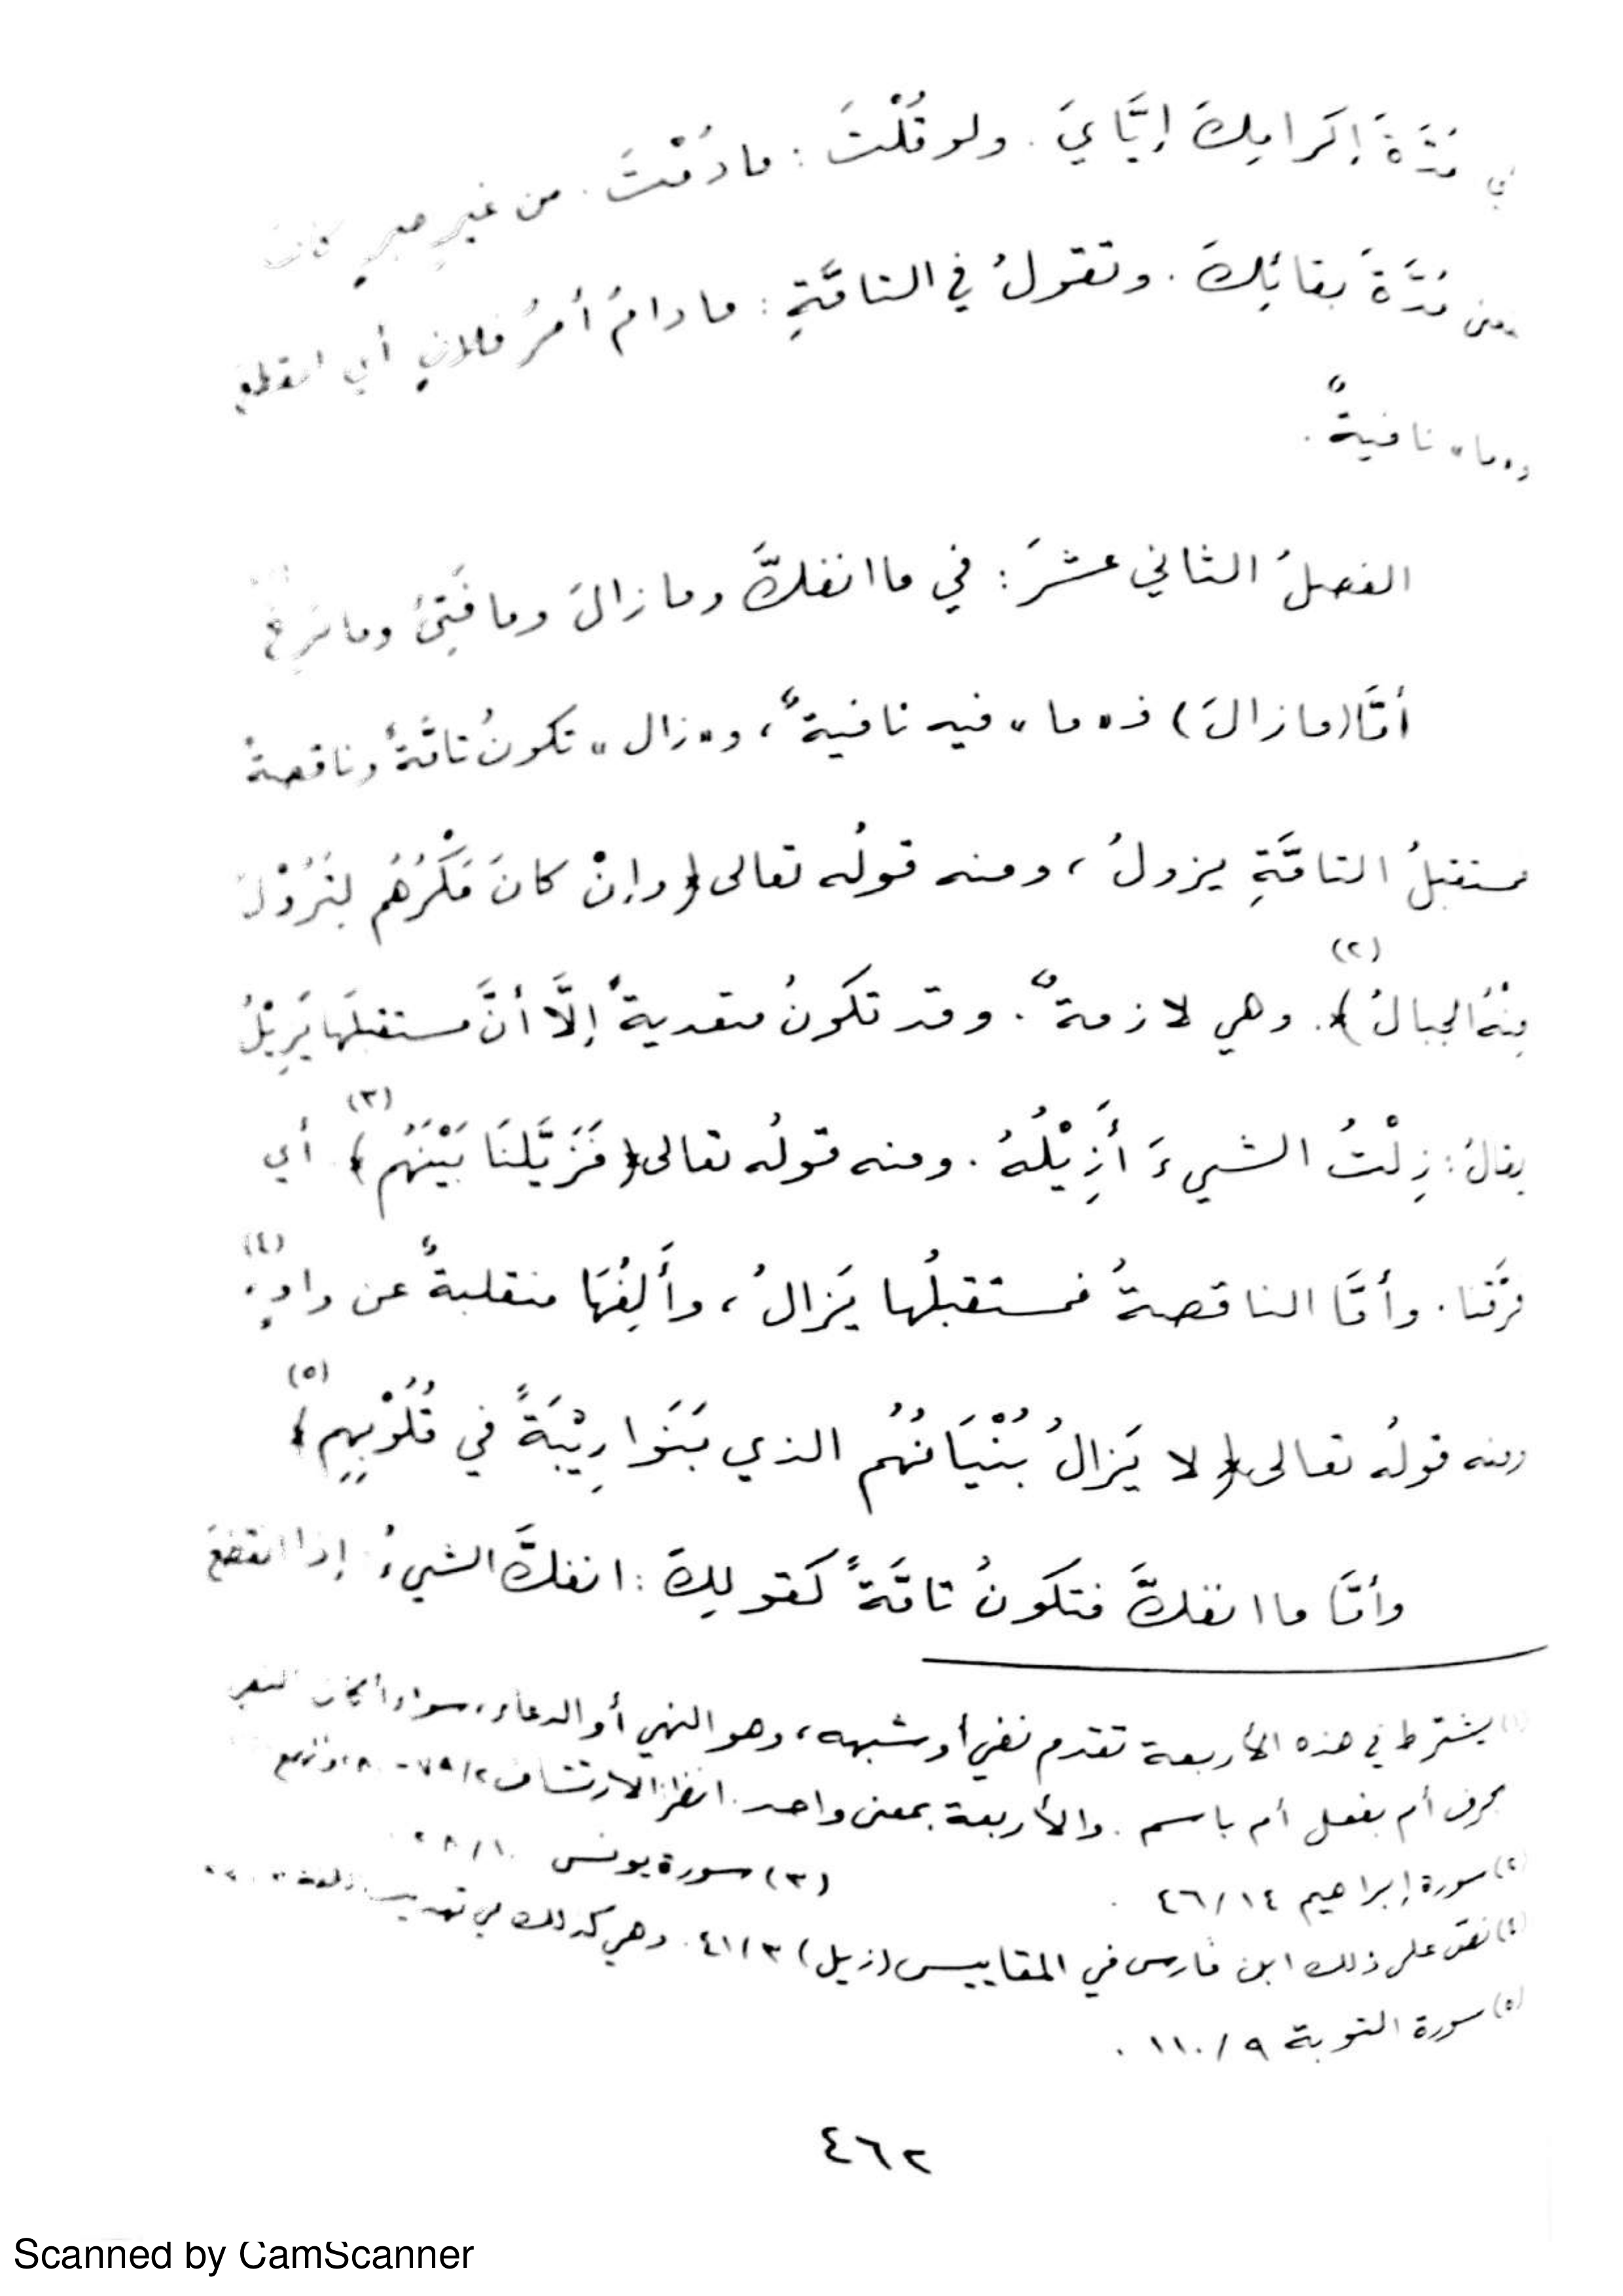 مُدَّةَ إِكرامِكَ إيَّايَ. ولو قُلْتَ: ما دُمْتَ. من غيرِ خبرٍ كان
مُدَّةَ بقائِكَ. وتقولُ في التامَّةِ: ما دامَ أمرُ فلانٍ أي انقطع
و"ما" نافيةٌ.
الفصلُ الثاني عشرَ: في ما انفكَّ وما زالَ وما فَتِئَ وما بَرِحَ
أمَّا (ما زالَ) فـ"ما" فيه نافيةٌ، و"زال" تكونُ تامَّةً وناقصةً
فمستقبلُ التامَّةِ يزولُ، ومنه قولُه تعالى ﴿وإنْ كانَ مَكْرُهُم لِتَزُوْلَ
مِنْهُ الجبالُ﴾(٢). وهي لازمةٌ. وقد تكونُ متعديةً إلَّا أنَّ مستقبلَها يَزِيْلُ
يقالُ: زِلْتُ الشيءَ أَزِيْلُهُ. ومنه قولُه تعالى ﴿فَزَيَّلنَا بَيْنَهُم﴾(٣) أي
فرَّقنا. وأمَّا الناقصةُ فمستقبلُها يَزالُ، وأَلِفُهَا منقلبةٌ عن واوٍ(٤).
ومنه قولُه تعالى ﴿لا يَزالُ بُنْيَانُهُم الذي بَنَوا رِيْبَةً في قُلُوْبِهِم﴾(٥)
وأمَّا ما انفكَّ فتكونُ تامَّةً كَقولِكَ: انفكَّ الشيءُ. إذا انقطعَ
(١) يشترط في هذه الأربعة تقدم نفي أو شبهه، وهو النهي أو الدعاء، سواء أكان النفي
بحرف أم بفعل أم باسم. والأربعة بمعنى واحد. انظر: الارتشاف ٢/٧٩-
(٢) سورة إبراهيم ١٤/٤٦.
(٣) سورة يونس ١٠/٢٨.
(٤) نصّ على ذلك ابن فارس في المقاييس (زيل) ٣/٤١. وهي كذلك في تهذيب اللغة
(٥) سورة التوبة ٩/١١٠.
٤٦٢
Scanned by CamScanner